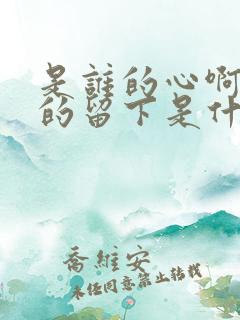 是誰的心啊
的留下是什
喬維安
未经同意禁止转载